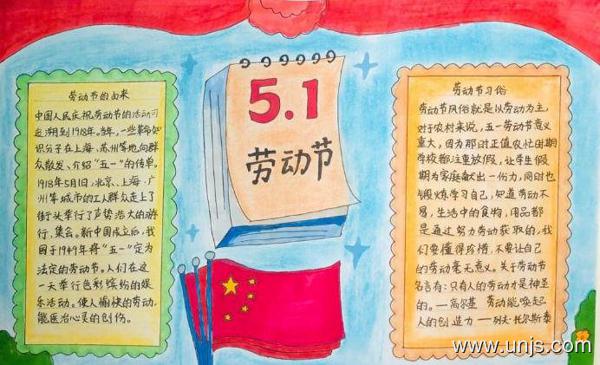 劳动节的由来
中国人民庆祝劳动节的活动可
追溯到1918年。当年,一些革命知
识分子在上海、苏州等地向群
众散发、介绍“五一”的传单。
1918年5月1日,北京、上海、广
州等城市的工人群众走上了
街头举行了声势浩大的游
行、集会。新中国成立后,我
国于1949年将“五一”定为
法定的劳动节。人们在这
一天举行色彩缤纷的娱
乐活动。使人愉快的劳动,
能医治心灵的创伤。
5.1
劳动节
劳动节习俗
劳动节风俗就是以劳动为主,
对于农村来说,五一劳动节意义
重大,因为那时正值农忙时期
学校都注重放假,让学生假
期为家庭献出一份力,同时也
锻炼学习自己,知道劳动不
易,生活中的食物,用品都
是靠努力劳动获取的,我
们要懂得珍惜,不要让自己
的劳动毫无意义。关于劳动节
名言有:只有人的劳动力是神圣
的。—高尔基 劳动能唤起
人的创造力—列夫·托尔斯泰
www.unjs.com